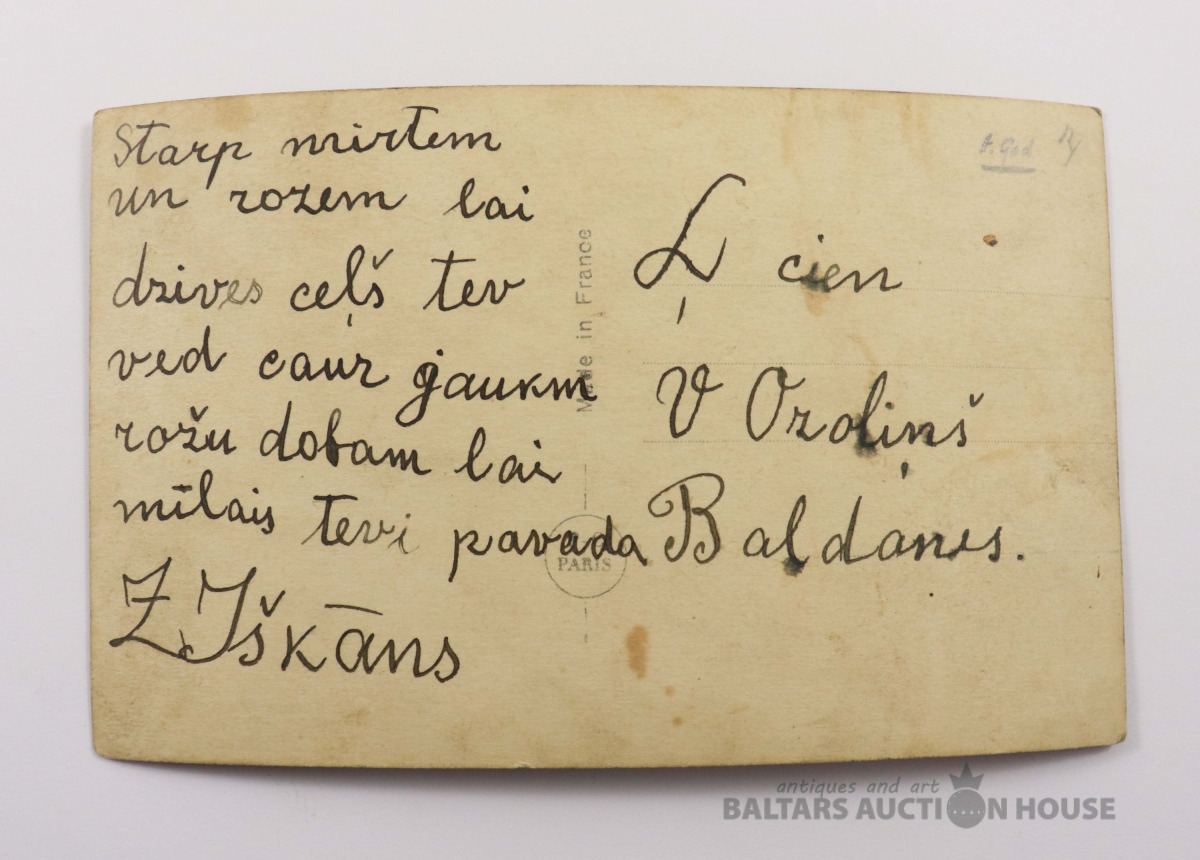 Starp mirtem
un rozem lai
dzives ceļš tev
ved caur jaukm
rožu dobam lai
mīlais tevi pavada
Z Iškāns
Made in France
PARIS
Ļ cien
V Ozoliņš
Baldaņes.
antiques and art
BALTARS AUCTION HOUSE